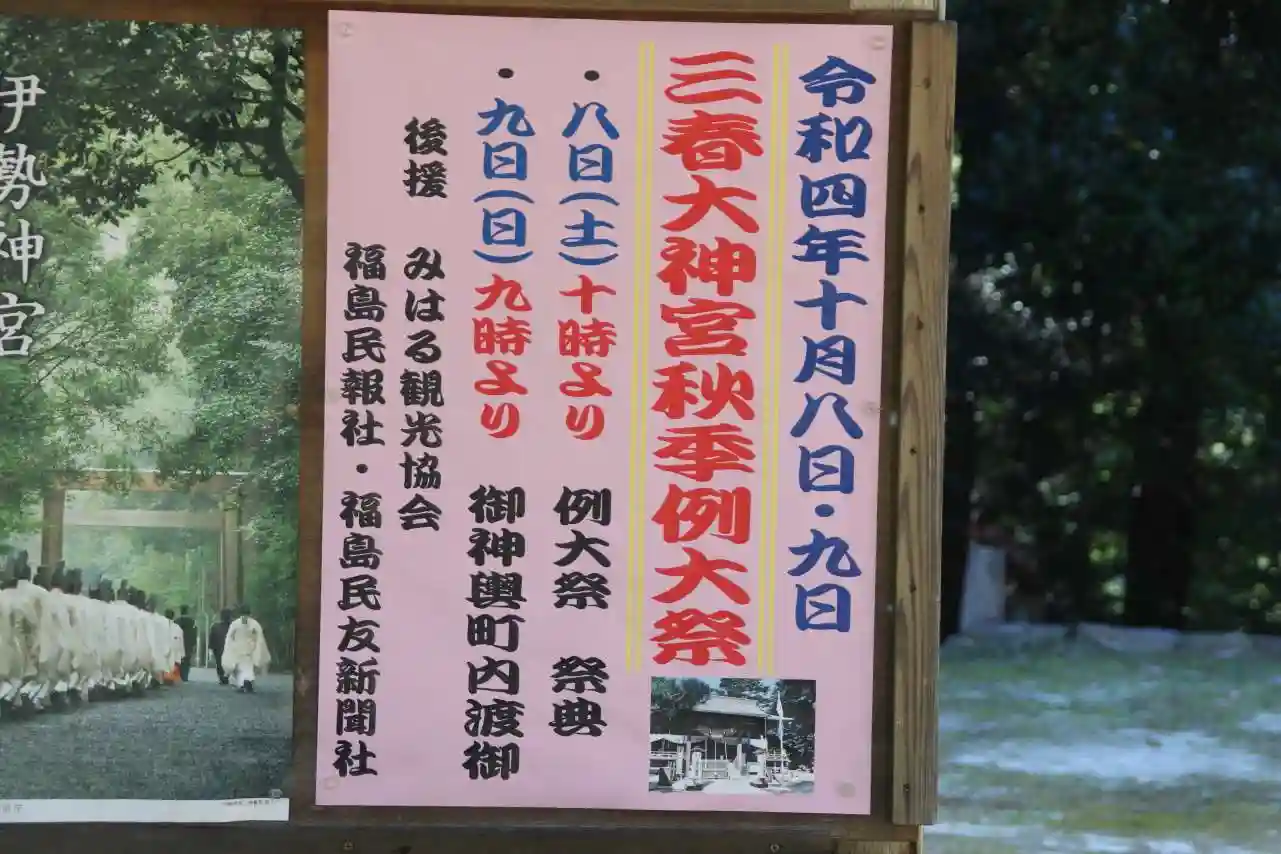 令和四年十月八日・九日
三春大神宮秋季例大祭
・八日(土)十時より 例大祭 祭典
・九日(日)九時より 御神輿町内渡御
後援 みはる観光協会
福島民報社・福島民友新聞社
伊勢神宮